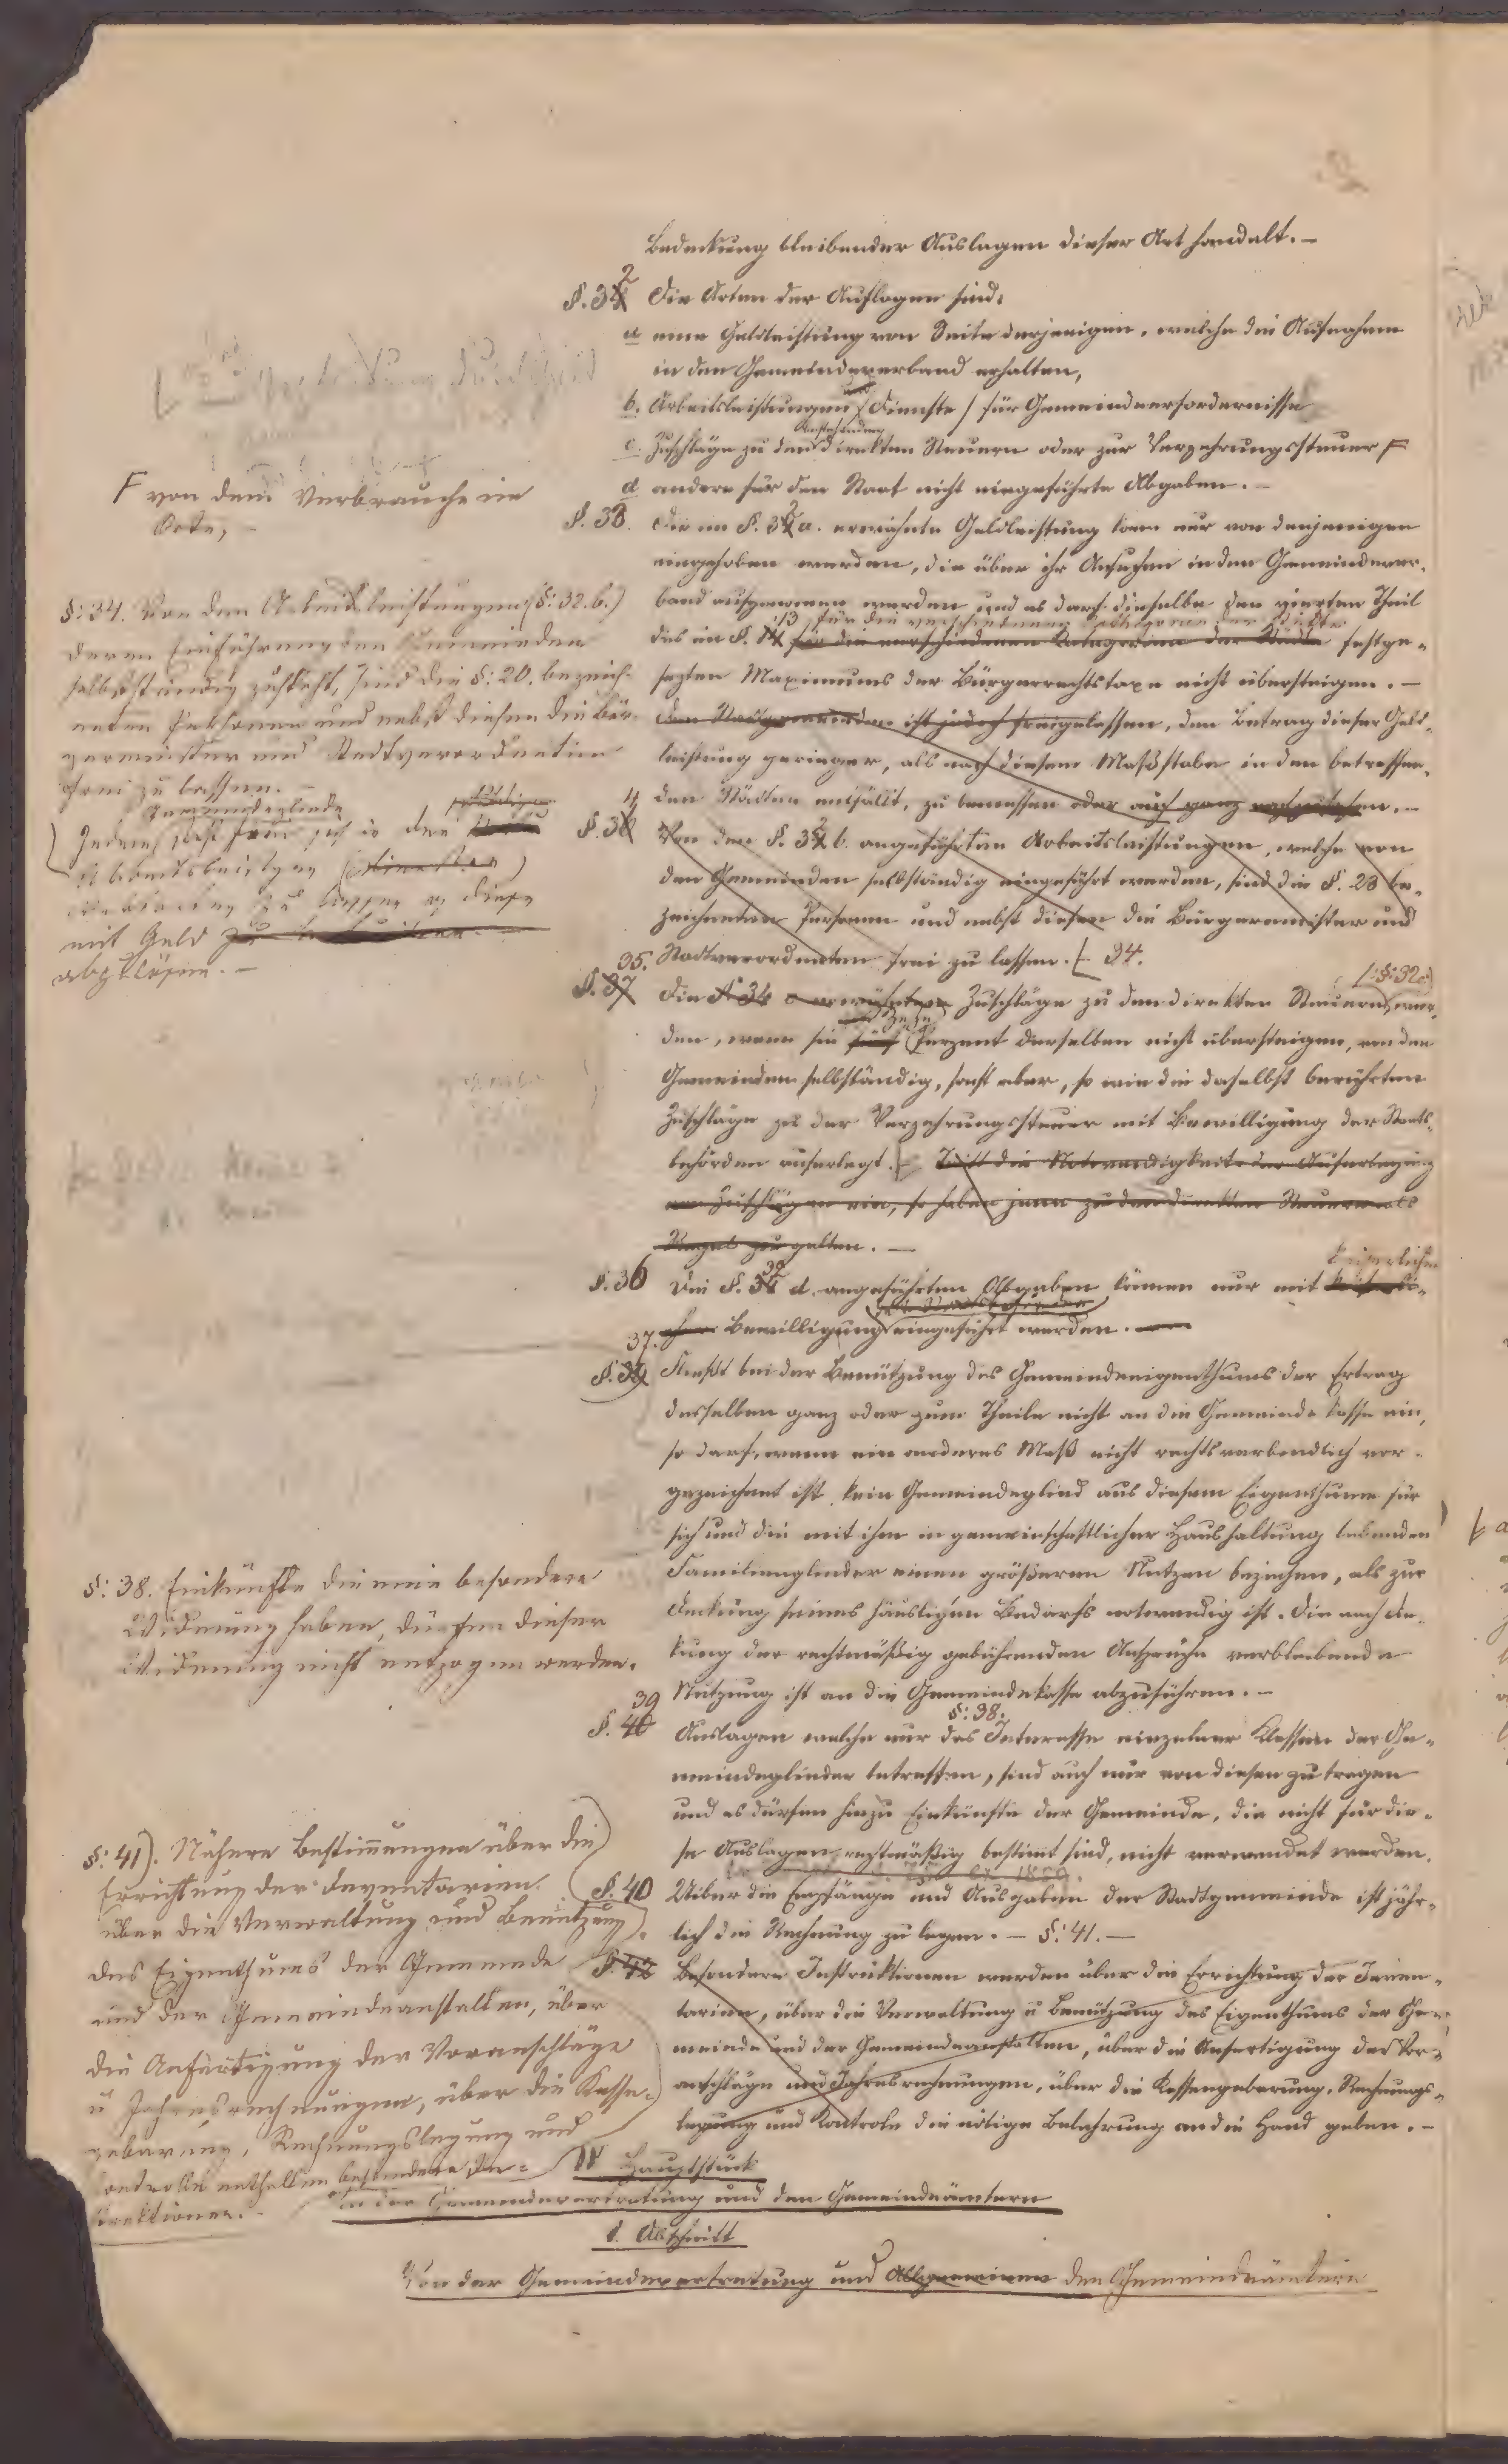 Bedeckung bleibender Auslagen dieser Art handelt. –
§. 32 Die Arten der Auflagen sind:
a eine Geldleistung von Seite derjenigen, welche die Aufnahme
in den Gemeindeverband erhalten,
b. Arbeitsleistungen (Dienste) für Gemeindeerfordernisse
c. Zuschläge zu den bestehenden direkten Steuern oder zur Verzehrungssteuer F
F von dem Verbrauche im
Orte, –
d andere für den Staat nicht eingeführte Abgaben. –
§. 33. Die im §. 32 a. erwähnte Geldleistung kann nur von denjenigen
eingehoben werden, die über ihr Ansuchen in den Gemeindever-
band aufgenommen werden und es darf dieselbe den vierten Theil
des im §. 13 für die verschiedenen Kategorien der Städte festge-
für die verschiedenen Kategorien der Städte
sezten Maximums der Bürgerrechtstaxe nicht übersteigen. –
Den Stadtgemeinden ist jedoch freigelassen, den Betrag dieser Geld-
leistung geringer, als nach diesem Maßstabe in den betreffen-
den Städten entfällt, zu bemessen oder auch ganz nachzulassen. –
§: 34. Von den Arbeitsleistungen (§: 32. b.)
deren Einführung den Gemeinden
selbstständig zusteht, sind die §: 20. bezeich-
neten Personen und nebst diesen die Bür-
germeister und Stadtverordneten
frei zu lassen. –
Gemeindegliede
Jedem steht frei sich in den
Arbeitsleistungen (Diensten)
vertreten zu lassen oder diese
mit Geld
abzulösen. –
§. 34 Von den §. 32 b. angeführten Arbeitsleistungen, welche von
den Gemeinden selbständig eingeführt werden, sind die §. 20 be-
zeichneten Personen und nebst diesen die Bürgermeister und
Stadtverordneten frei zu lassen. 34.
35. §. 37 Die §. 34 c erwähnten Zuschläge zu den direkten Steuern (§: 32 c) wer-
den, wenn sie fünf zehn Perzent derselben nicht übersteigen, von den
Gemeinden selbständig, sonst aber, so wie die daselbst berührten
Zuschläge zu der Verzehrungssteuer mit Bewilligung der Staats-
behörden auferlegt. Tritt die Notwendigkeit der Auferlegung
von Zuschlägen ein, so haben jene zu den direkten Steuern als
Regel zu gelten. –
§. 36 Die §. 32 d. angeführten Abgaben können nur mit kaiserlicher
Bewilligung eingeführt werden. –
37. §. 39 Fließt bei der Benützung des Gemeindeeigenthums der Ertrag
desselben ganz oder zum Theile nicht an die Gemeinde Kasse ein,
so darf, wenn ein anderes Maß nicht rechtsverbindlich vor-
gezeichnet ist, kein Gemeindeglied aus diesem Eigenthume für
sich und die mit ihm in gemeinschaftlicher Haushaltung lebenden
Familienglieder einen größeren Nutzen beziehen, als zur
Deckung seines häuslichen Bedarfs notwendig ist. Die nach De-
kung der rechtmäßig gebührenden Ansprüche verbleibende
Nutzung ist an die Gemeindekasse abzuführen. –
§: 38.
§: 38. Einkünfte die eine besondere
Widmung haben, dürfen dieser
Widmung nicht entzogen werden.
39 §. 40 Auslagen welche nur das Interesse einzelner Klassen der Ge-
meindeglieder betreffen, sind auch nur von diesen zu tragen
und es dürfen hiezu Einkünfte der Gemeinde, die nicht für die-
se Auslagen rechtmäßig bestimt sind, nicht verwendet werden.
§. 40 Uiber die Empfänge und Ausgaben der Stadtgemeinde ist jähr-
lich die Rechnung zu legen. – §: 41. –
§: 41). Nähere Bestimmungen über die
Errichtung der Inventarien
über die Verwaltung und Benützung
des Eigenthumes der Gemeinde
und der Gemeindeanstalten, über
die Anfertigung der Voranschläge
u Jahresrechnungen, über die Kasse-
gebarung, Rechnungslegung und
Controlle enthalten besondere In-
struktionen. –
§. 42 Besondere Instruktionen werden über die Errichtung der Inven-
tarien, über die Verwaltung u Benützung des Eigenthums der Ge-
meinde und der Gemeindeanstalten, über die Anfertigung der Vor-
anschläge und Jahresrechnungen, über die Kassengebarung, Rechnungs-
legung und Kontrole die nötige Belehrung an die Hand geben. –
IV Hauptstück
Von der Gemeindevertretung und den Gemeindeämtern
1. Abschnitt
Von der Gemeindevertretung und Allgemeinen den Gemeindeämtern